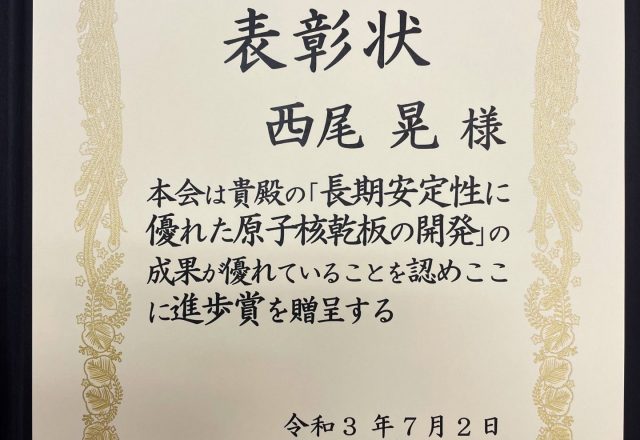 表彰状
西尾 晃 様
本会は貴殿の「長期安定性に
優れた原子核乾板の開発」の
成果が優れていることを認めここ
に進歩賞を贈呈する
令和3年7月2日